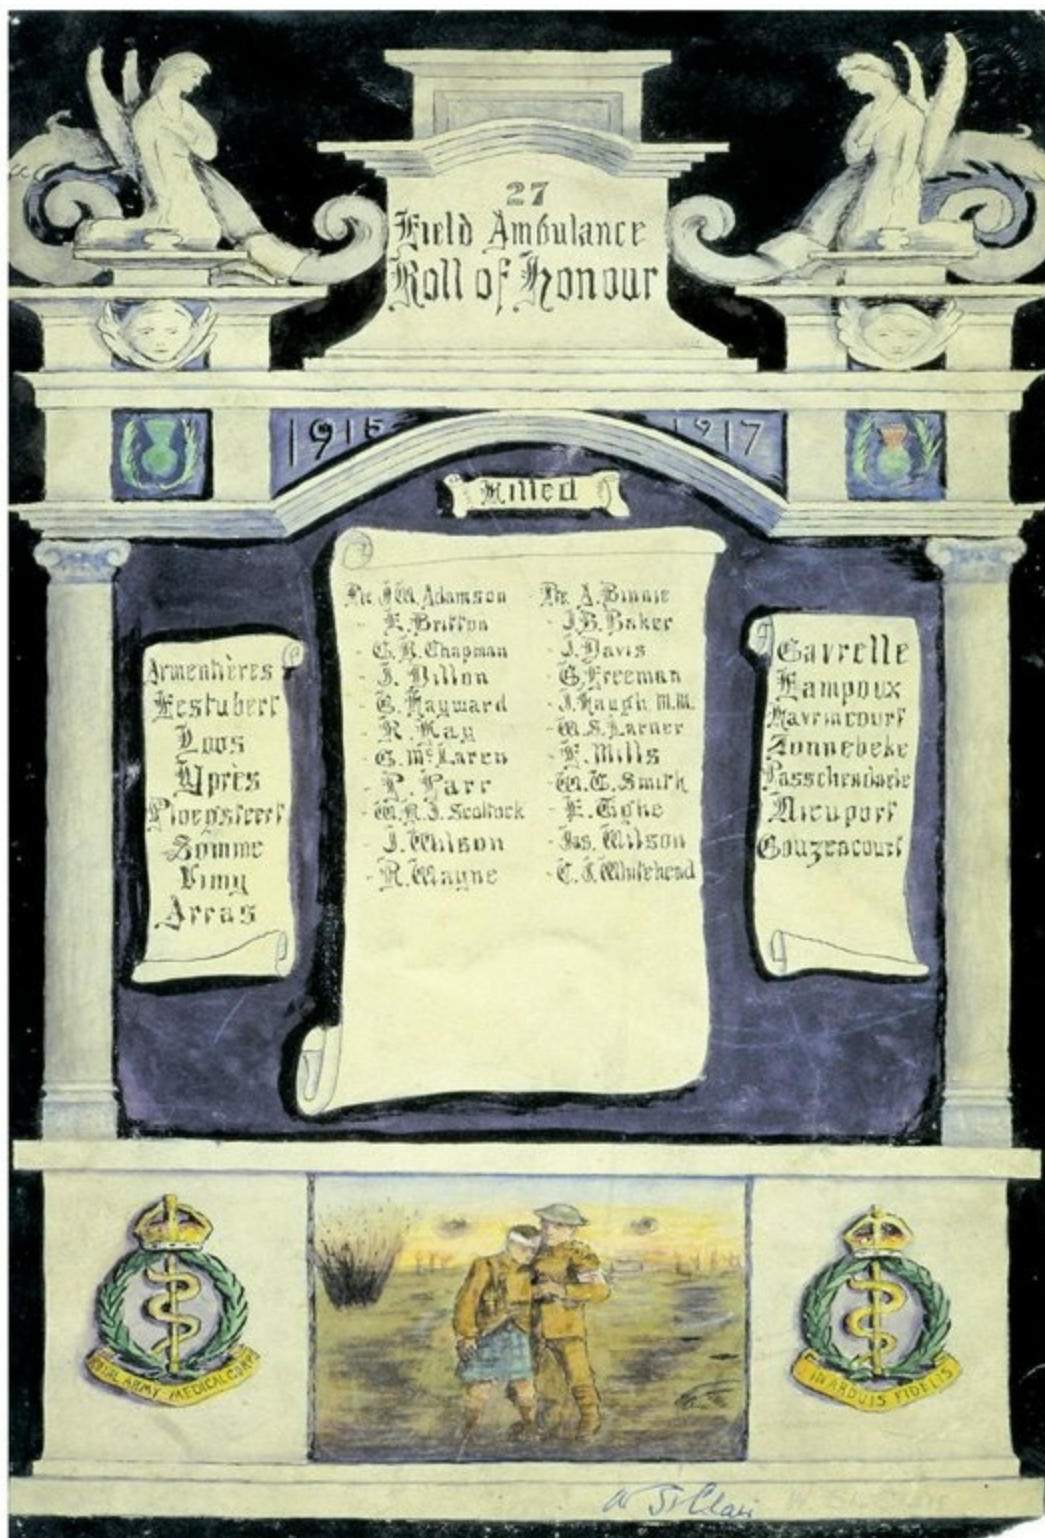 27
Field Ambulance
Roll of Honour
1915 1917
Killed
Armentières
Festubert
Loos
Yprès
Ploegsteert
Somme
Vimy
Arras
Pte J.W. Adamson
- E. Britton
- G.R. Chapman
- J. Dillon
- G. Hayward
- R. Kay
- G. McLaren
- P. Parr
- W.R.J. Scattock
- J. Wilson
- R. Wayne
Pte A. Binnie
- J.B. Baker
- J. Davis
- G. Freeman
- J. Haugh M.M.
- W.S. Larner
- F. Mills
- W.G. Smith
- E. Tighe
- Jas. Wilson
- C.J. Whitehead
Gavrelle
Fampoux
Havrincourt
Zonnebeke
Passchendaele
Nieuport
Gouzeacourt
ROYAL ARMY MEDICAL CORPS
IN ARDUIS FIDELIS
W St Clair